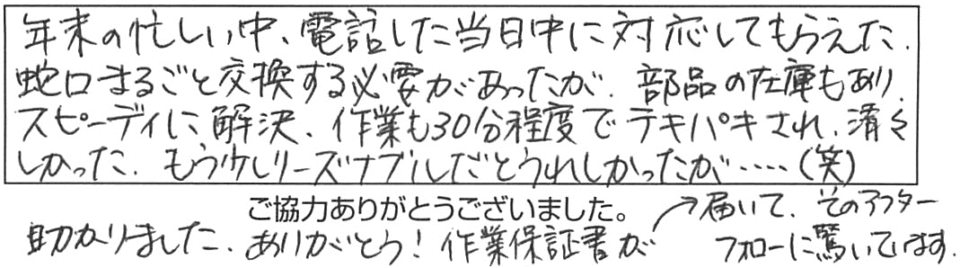 年末の忙しい中、電話した当日中に対応してもらえた。
蛇口まるごと交換する必要があったが、部品の在庫もあり、
スピーディに解決、作業も30分程度でテキパキされ、清々
しかった。もう少しリーズナブルだとうれしかったが・・・・・(笑)
ご協力ありがとうございました。
助かりました。ありがとう!作業保証書が→届いて、そのアフター
フォローに驚いています。